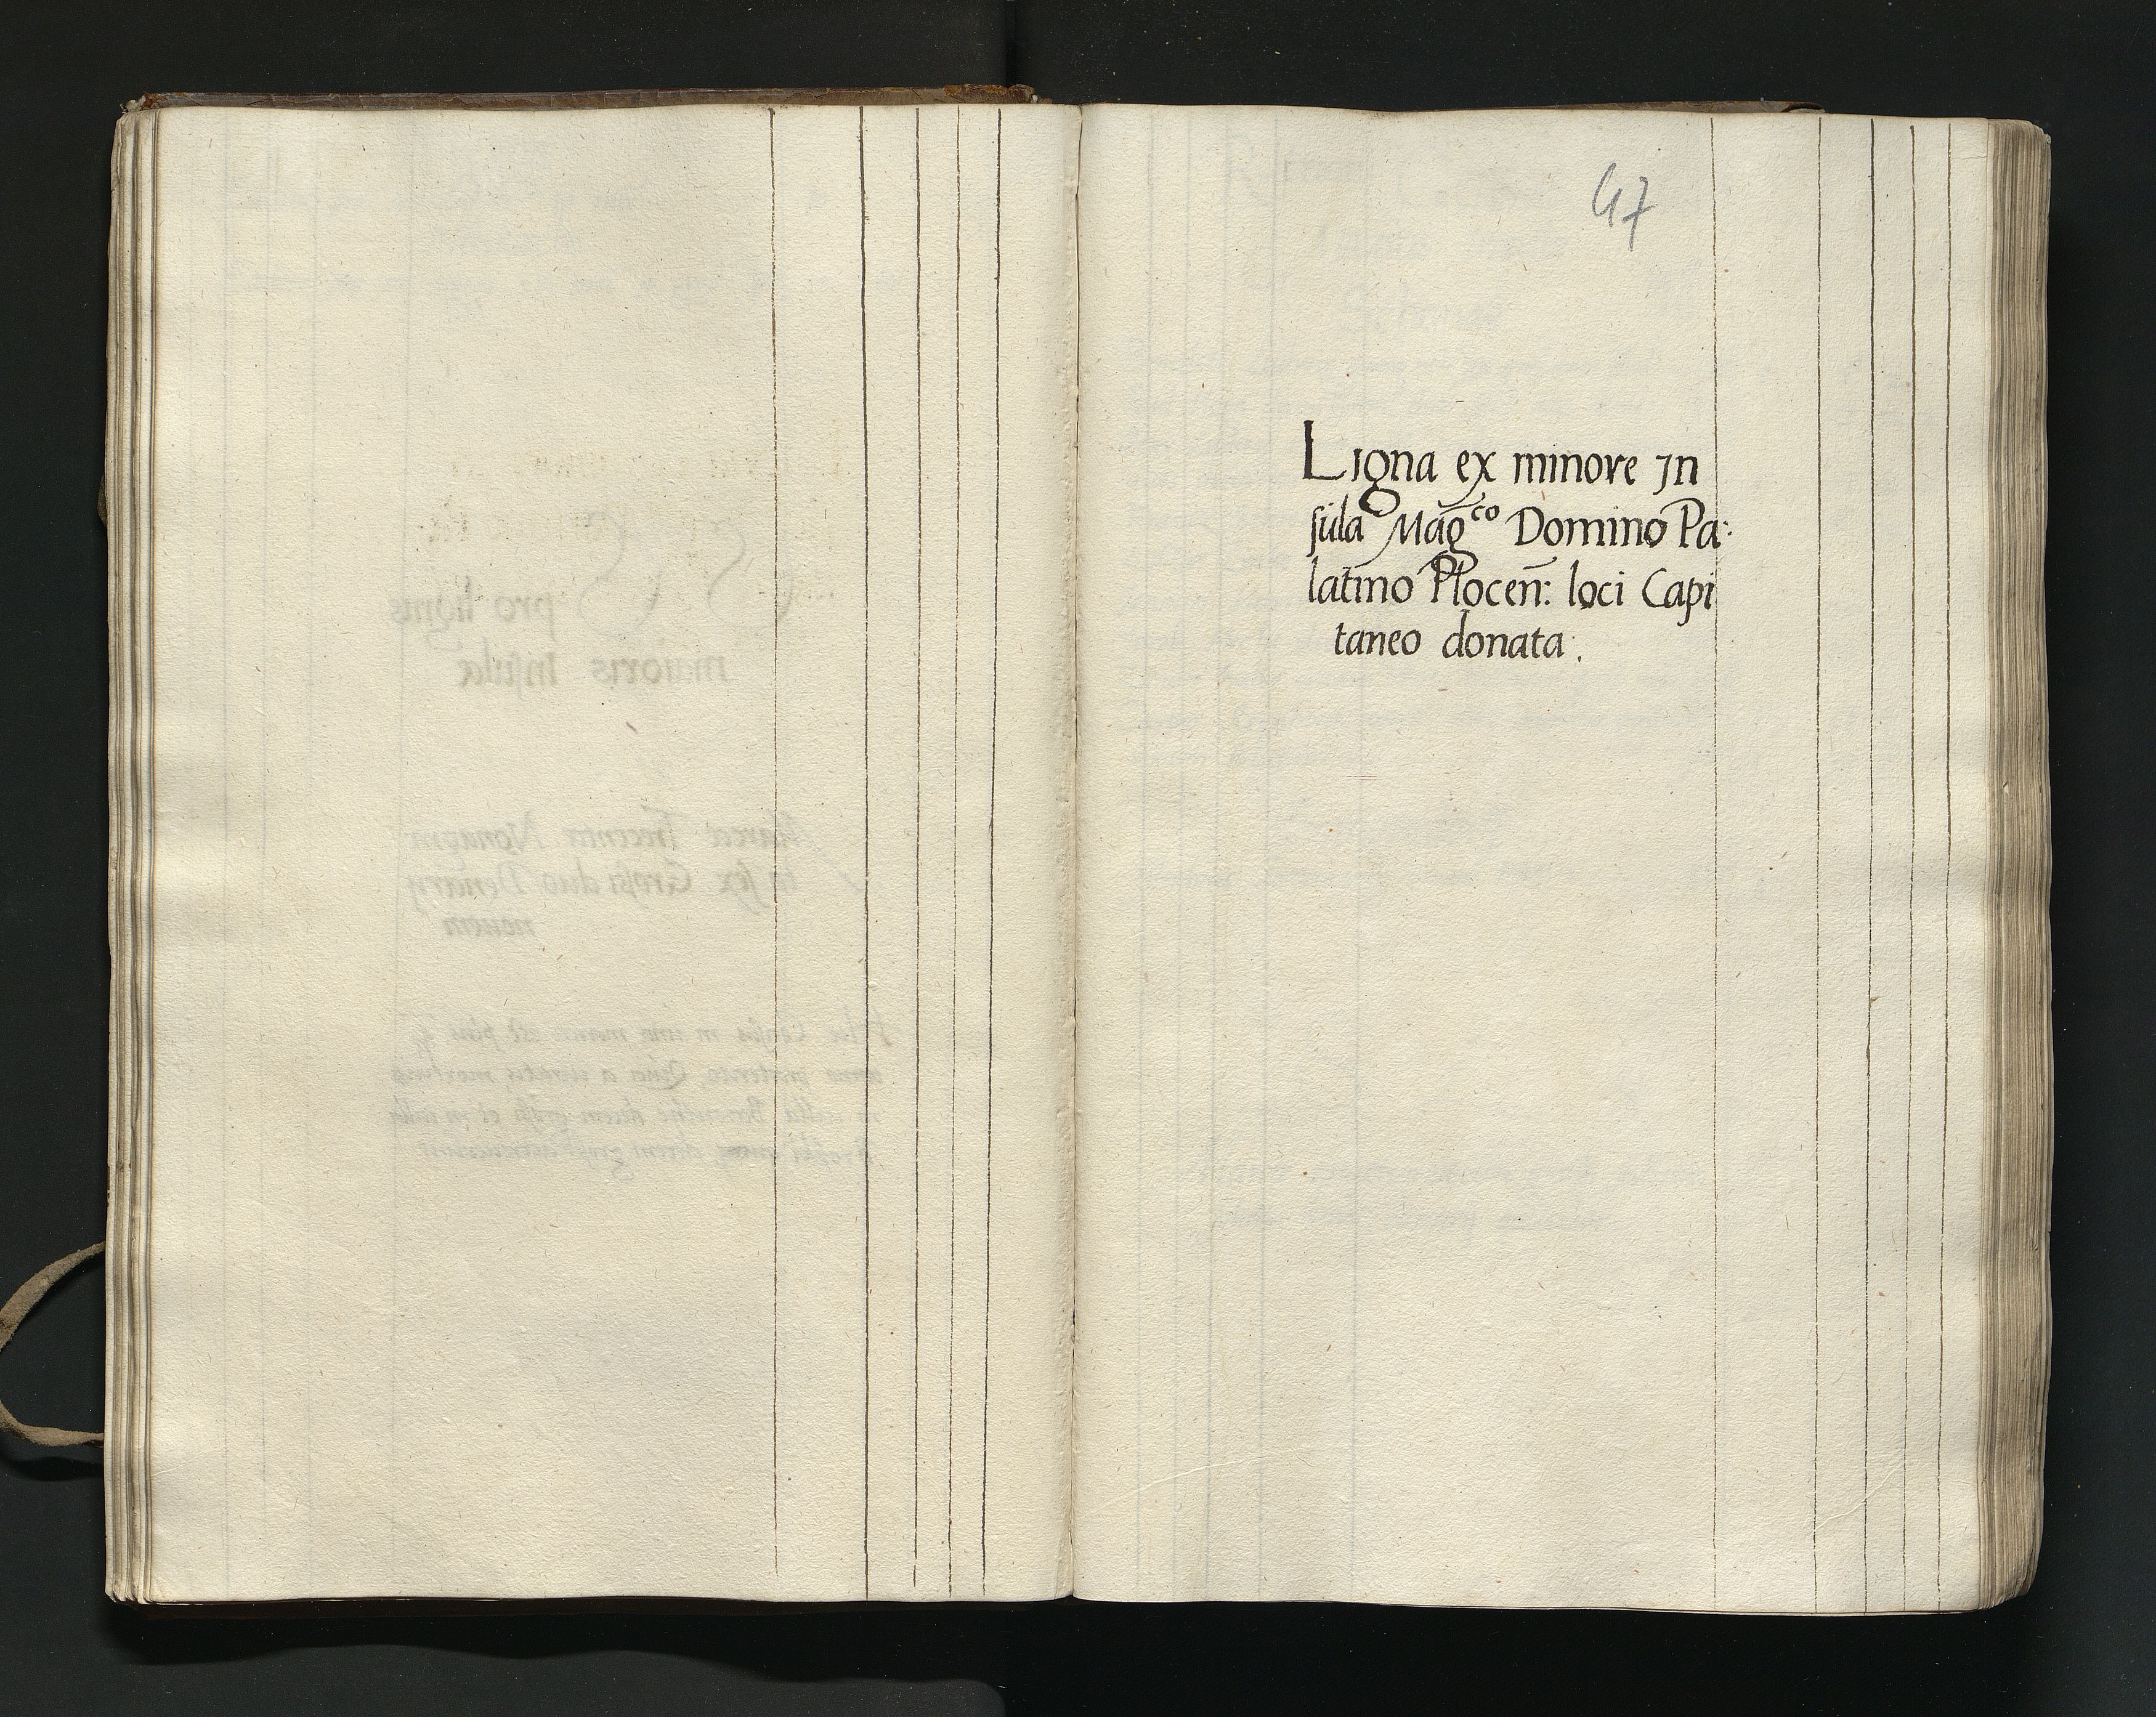 47
Ligna ex minore jn
sula Mag^co Domino Pa:
latino Plocen̄: loci Capi
taneo donata.